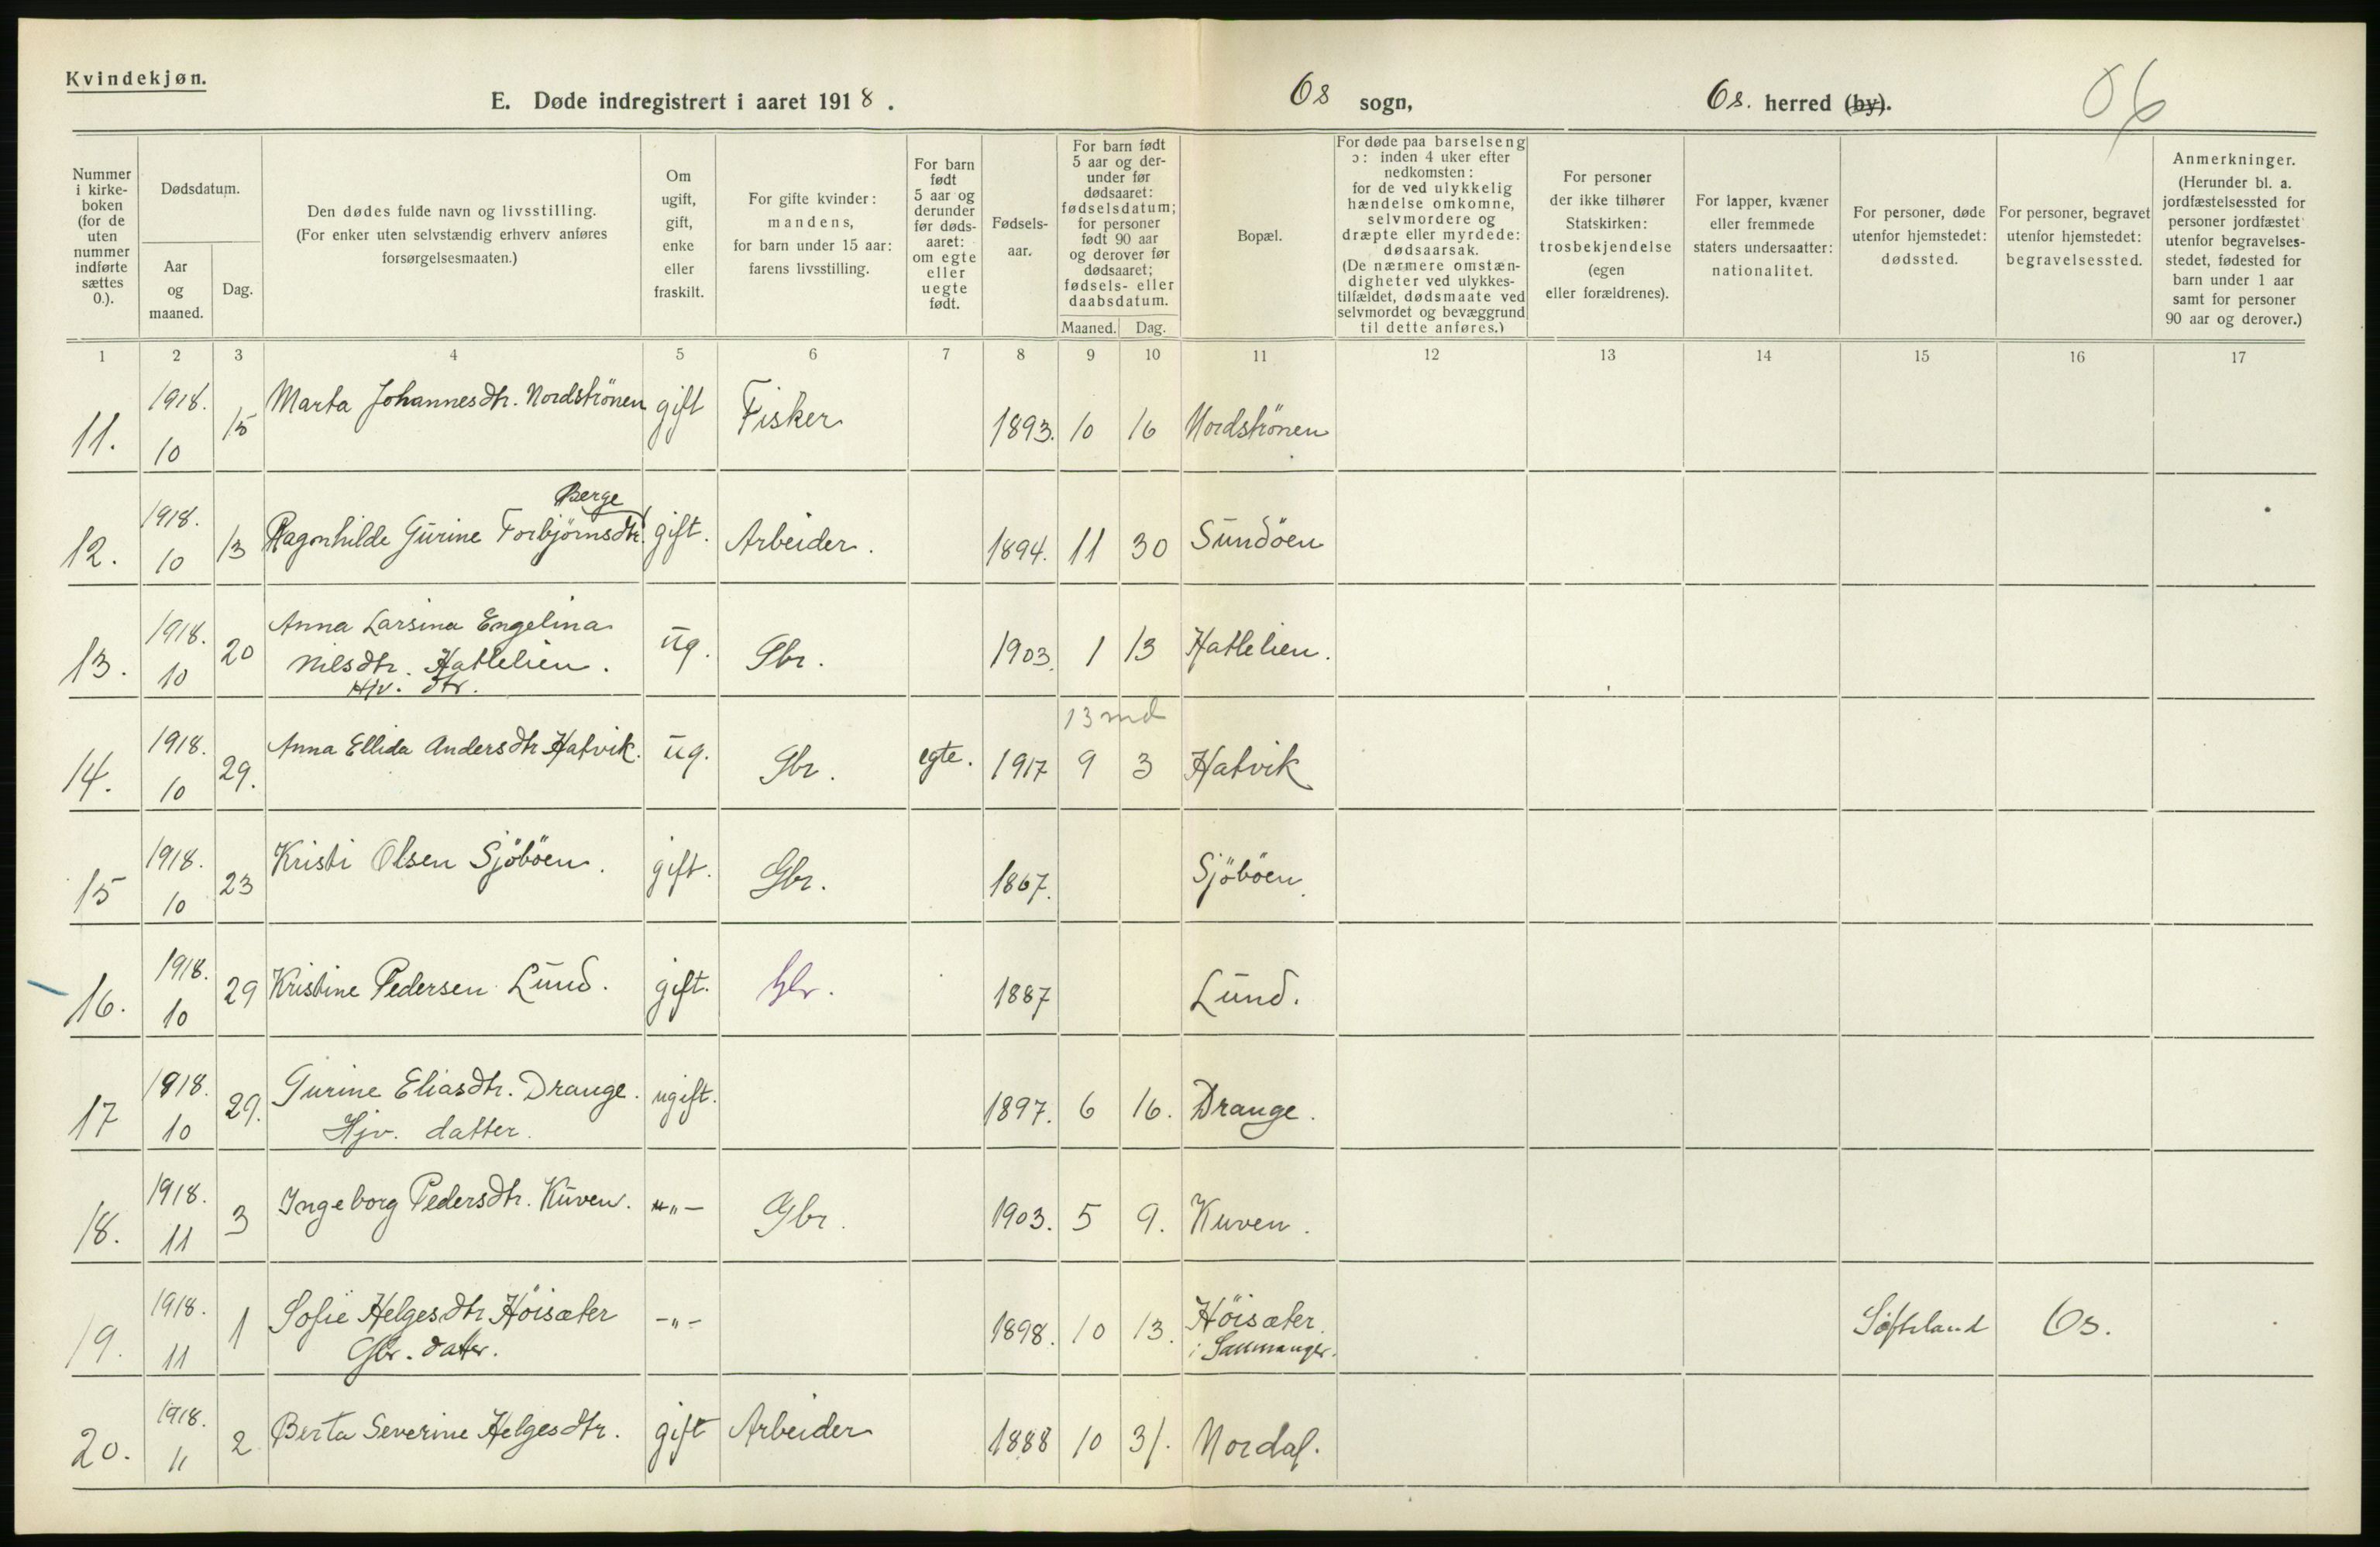 Kvindekjøn.
E. Døde indregistrert i aaret 1918.
Os sogn,
Os. herred (by).
Nummer i kirke-boken (for de uten nummer indførte sættes 0.).
Dødsdatum.
Aar og maaned.
Dag.
Den dødes fulde navn og livsstilling.
(For enker uten selvstændig erhverv anføres forsørgelsesmaaten.)
Om ugift, gift, enke eller fraskilt.
For gifte kvinder: mandens, for barn under 15 aar: farens livsstilling.
For barn født 5 aar og derunder før døds-aaret: om egte eller uegte født.
Fødsels-aar.
For barn født 5 aar og der-under før dødsaaret: fødselsdatum; for personer født 90 aar og derover før dødsaaret; fødsels- eller daabsdatum.
Maaned.
Dag.
Bopæl.
For døde paa barselseng ɔ: inden 4 uker efter nedkomsten: for de ved ulykkelig hændelse omkomne, selvmordere og dræpte eller myrdede: dødsaarsak. (De nærmere omstæn-digheter ved ulykkes-tilfældet, dødsmaate ved selvmordet og bevæggrund til dette anføres.)
For personer der ikke tilhører Statskirken: trosbekjendelse (egen eller forældrenes).
For lapper, kvæner eller fremmede staters undersaatter: nationalitet.
For personer, døde utenfor hjemstedet: dødssted.
For personer, begravet utenfor hjemstedet: begravelsessted.
Anmerkninger. (Herunder bl. a. jordfæstelsessted for personer jordfæstet utenfor begravelses-stedet, fødested for barn under 1 aar samt for personer 90 aar og derover.)
1 2 3 4 5 6 7 8 9 10 11 12 13 14 15 16 17
11. 1918. 10 15 Marta Johannesdtr. Nordströnen gift Fisker 1893. 10 16 Nordströnen
Berge
12. 1918. 10 13 Ragnhilde Gurine Torbjørnsdtr. gift. Arbeider. 1894. 11 30 Sundöen
13. 1918. 10 20 Anna Larsina Engelina
Nilsdtr. Hatlelien. ug. Gbr. 1903. 1 13 Hatlelien.
Hjv. dtr.
13 md
14. 1918. 10 29. Anna Ellida Andersdtr Hatvik. ug. Gbr. egte. 1917 9 3 Hatvik
15 1918. 10 23 Kristi Olsen Sjöböen. gift. Gbr. 1867. Sjöböen.
16. 1918. 10 29 Kristine Pedersen Lund. gift. Gbr. 1887 Lund.
17 1918. 10 29. Gurine Eliasdtr. Drange. ugift. 1897. 6 16. Drange.
Hjv. datter.
18. 1918. 11 3 Ingeborg Pedersdtr. Kuven. -"- Gbr. 1903. 5 9. Kuven.
19. 1918. 11 1 Sofie Helgesdtr Höisæter -"- 1898. 10 13. Höisæter. Söfteland Os.
Gbr. datter. i Samnanger.
20. 1918. 11 2 Berta Severine Helgesdtr. gift Arbeider 1888 10 31. Mordal.